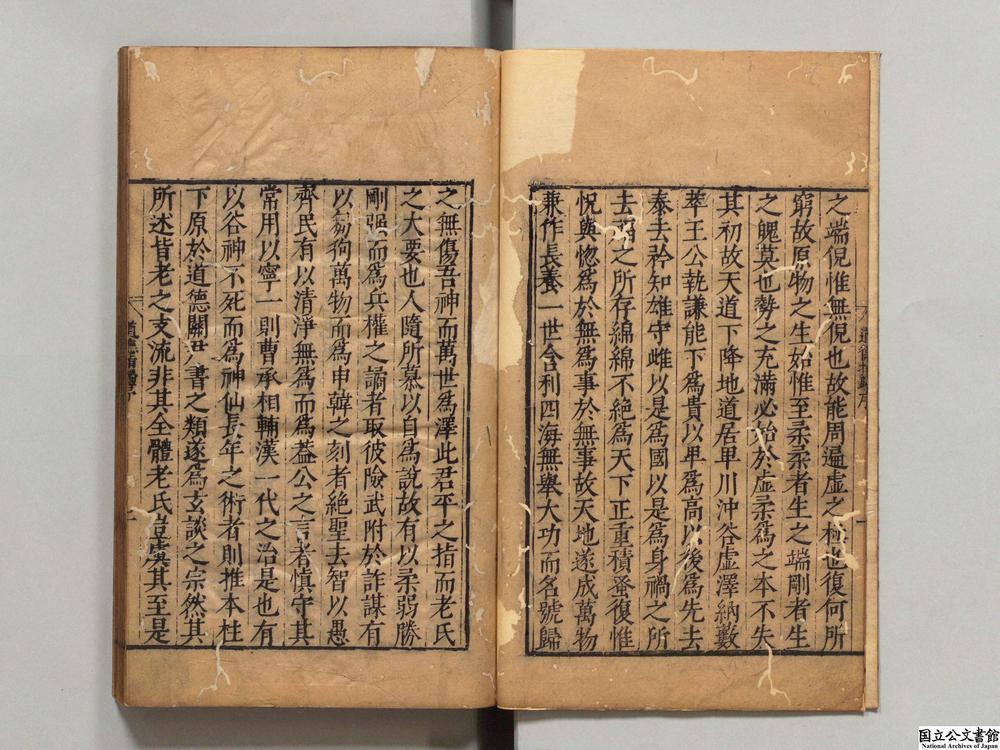 之端倪惟無倪也故能周遍虛之極也復何所
窮故原物之生始惟至柔柔者生之端剛者生
之魄莫也勢之充滿必始於虛柔爲之本不失
其初故天道下降地道居卑川沖谷虛澤納藪
萃王公執謙能下爲貴以卑爲高以後爲先去
泰去矜知雄守雌以是爲國以是爲身禍之所
去福之所存綿綿不絕爲天下正重積蚤復惟
怳與惚爲於無爲事於無事故天地遂成萬物
兼作長養一世含利四海無舉大功而名號歸
之無傷吾神而萬世爲澤此君平之指而老氏
之大要也人隨所慕以自爲說故有以柔弱勝
剛强而爲兵權之謫者取彼險武附於詐謀有
以芻狗萬物而爲申韓之刻者絕聖去智以愚
齊民有以清淨無爲而爲蓋公之言者慎守其
常用以寧一則曹丞相輔漢一代之治是也有
以谷神不死而爲神仙長年之術者則推本柱
下原於道德關尹書之類遂爲玄談之宗然其
所述皆老之支流非其全體老氏豈虞其至是
国立公文書館
National Archives of Japan